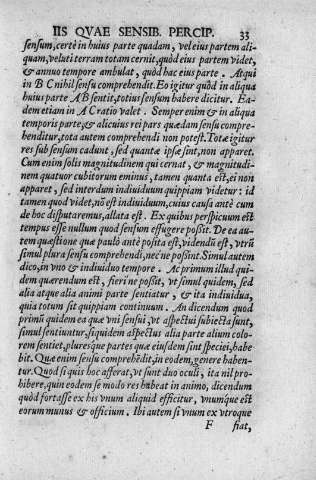 IIS QVAE SENSIB. PERCIP. 33
sensum, certè in huius parte quadam, vel eius partem ali-
quam, veluti terram totam cernit, quòd eius partem videt,
& annuo tempore ambulat, quòd hac eius parte. At qui
in B C nihil sensu comprehendit. Eo igitur quòd in aliqua
huius parte A B sentit, totius sensum habere dicitur. Ea-
dem etiam in A C ratio valet. Semper enim & in aliqua
temporis parte, & alicuius rei pars quædam sensu compre-
henditur, tota autem comprehendi non potest. Totæ igitur
res sub sensum cadunt, sed quantæ ipsæ sint, non apparet.
Cum enim solis magnitudinem qui cernat, & magnitudi-
nem quatuor cubitorum eminus, tamen quanta est, ei non
apparet, sed interdum indiuiduum quippiam videtur: id
tamen quod videt, nõ est indiuiduum, cuius causa antè cum
de hoc disputaremus, allata est. Ex quibus perspicuum est
tempus esse nullum quod sensum effugere possit. De ea au-
tem quæstione quæ paulò antè posita est, videndũ est, vtrũ
simul plura sensu comprehendi, nec ne possint. Simul autem
dico, in vno & indiuiduo tempore. Ac primum illud qui-
dem quærendum est, fieri ne possit, vt simul quidem, sed
alia atque alia animi parte sentiatur, & ita indiuidua,
quia totum sit quippiam continuum. An dicendum quod
primũ quidem ea quæ vni sensui, vt aspectui subiecta sunt,
simul sentiuntur, siquidem aspectus alia parte alium colo-
rem sentiet, pluresque partes quæ eiusdem sint speciei, habe
bit. Quæ enim sensu comprehẽdit, in eodem, genere haben-
tur. Quod si quis hoc afferat, vt sunt duo oculi, ita nil pro-
hibere, quin eodem se modo res habeat in animo, dicendum
quòd fortasse ex his vnum aliquid efficitur, vnumque est
eorum munus & officium. Ibi autem si vnum ex vtroque
F fiat,